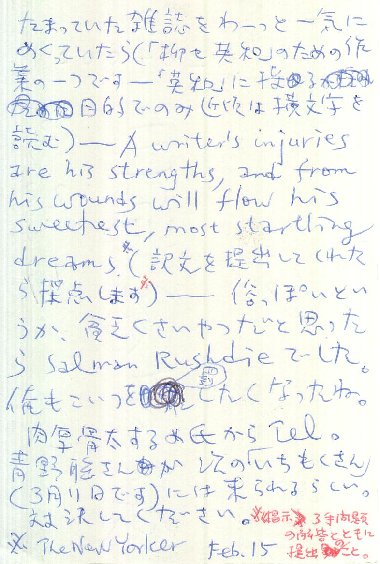 たまっていた雑誌をわーっと一気に
めくっていたら(「柳モ英知」のための作
業の一つです—「英知」に接する
目的でのみ(近頃は横文字を
読む)— A writer's injuries
are his strengths, and from
his wounds will flow his
sweetest, most startling
dreams.※(訳文を提出してくれた
ら採点します※)—— 俗っぽいとい
うか、貧乏くさいやつだと思った
ら Salman Rushdie でした。
俺もこいつを したくなったね。
肉厚骨太するめ氏から Tel。
青野聰さんが次の「いちもくさん」
(3月11日です)には来られるらしい。
対決してください。
※ The New Yorker Feb. 15
※掲示 3手問題
の解答とともに
提出のこと。